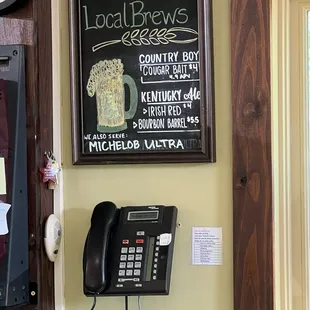 Local Brews
COUNTRY BOY
COUGAR BAIT $4
4.9 APV
KENTUCKY Ale
>IRISH RED
$4
>BOURBON BARREL $5.5
WE ALSO
SERVE:
MICHELOB ULTRA